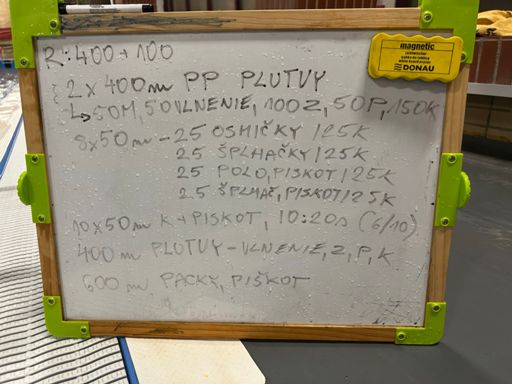 R: 400 + 100
2 x 400m PP PLUTVY
↳ 50M, 50VLNENIE, 100Z, 50P, 150K
8x50m - 25 OSMIČKY / 25K
25 ŠPLHAČKY / 25K
25 POLO, PISKOT / 25K
25 ŠPLHAČ, PISKOT / 25K
10x50m K + PISKOT, 10:20s (6/10)
400m PLUTVY - VLNENIE, Z, P, K
600m PACKY, PIŠKOT
magnetic
DONAU